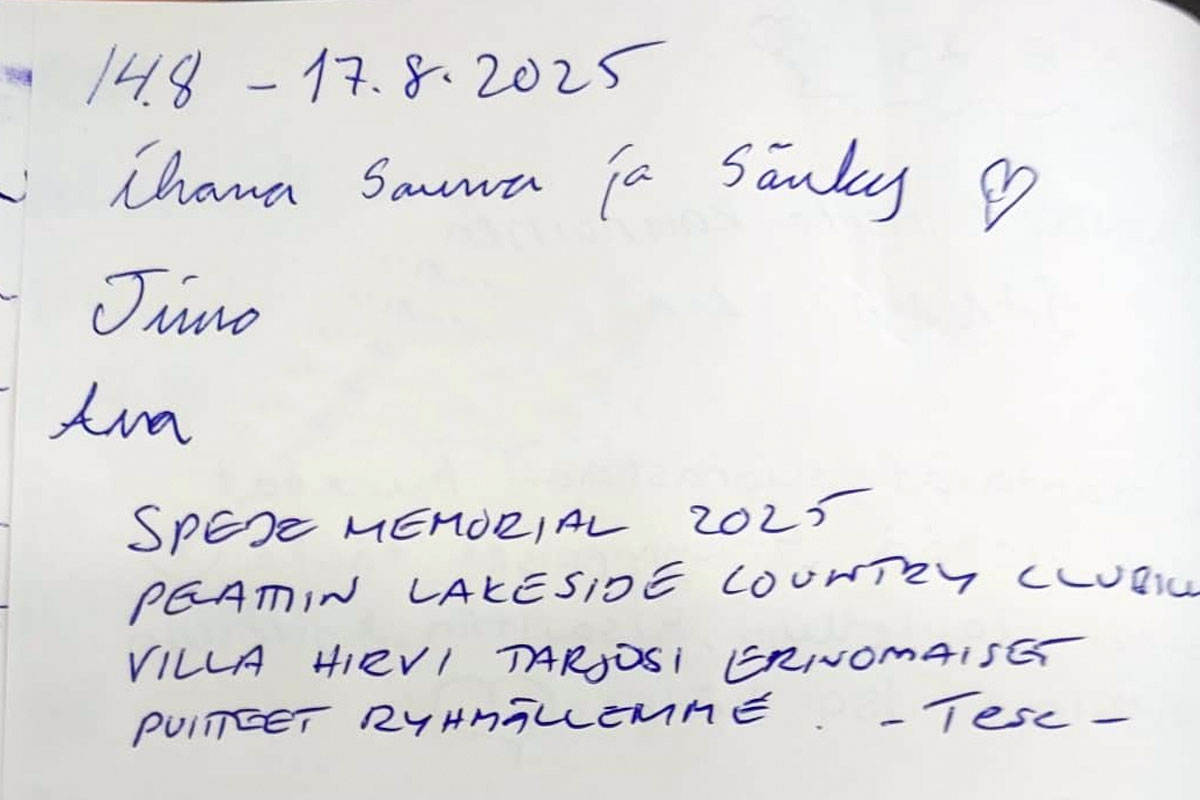 14.8 - 17.8.2025
Ihana Sauna ja Sänky ♡
Jimo
Ava
SPEDE MEMORIAL 2025
PELATTIIN LAKESIDE COUNTRY
VILLA HIRVI TARJOSI ERINOMAISET
PUITTEET RYHMÄLLEMME. - Tese -